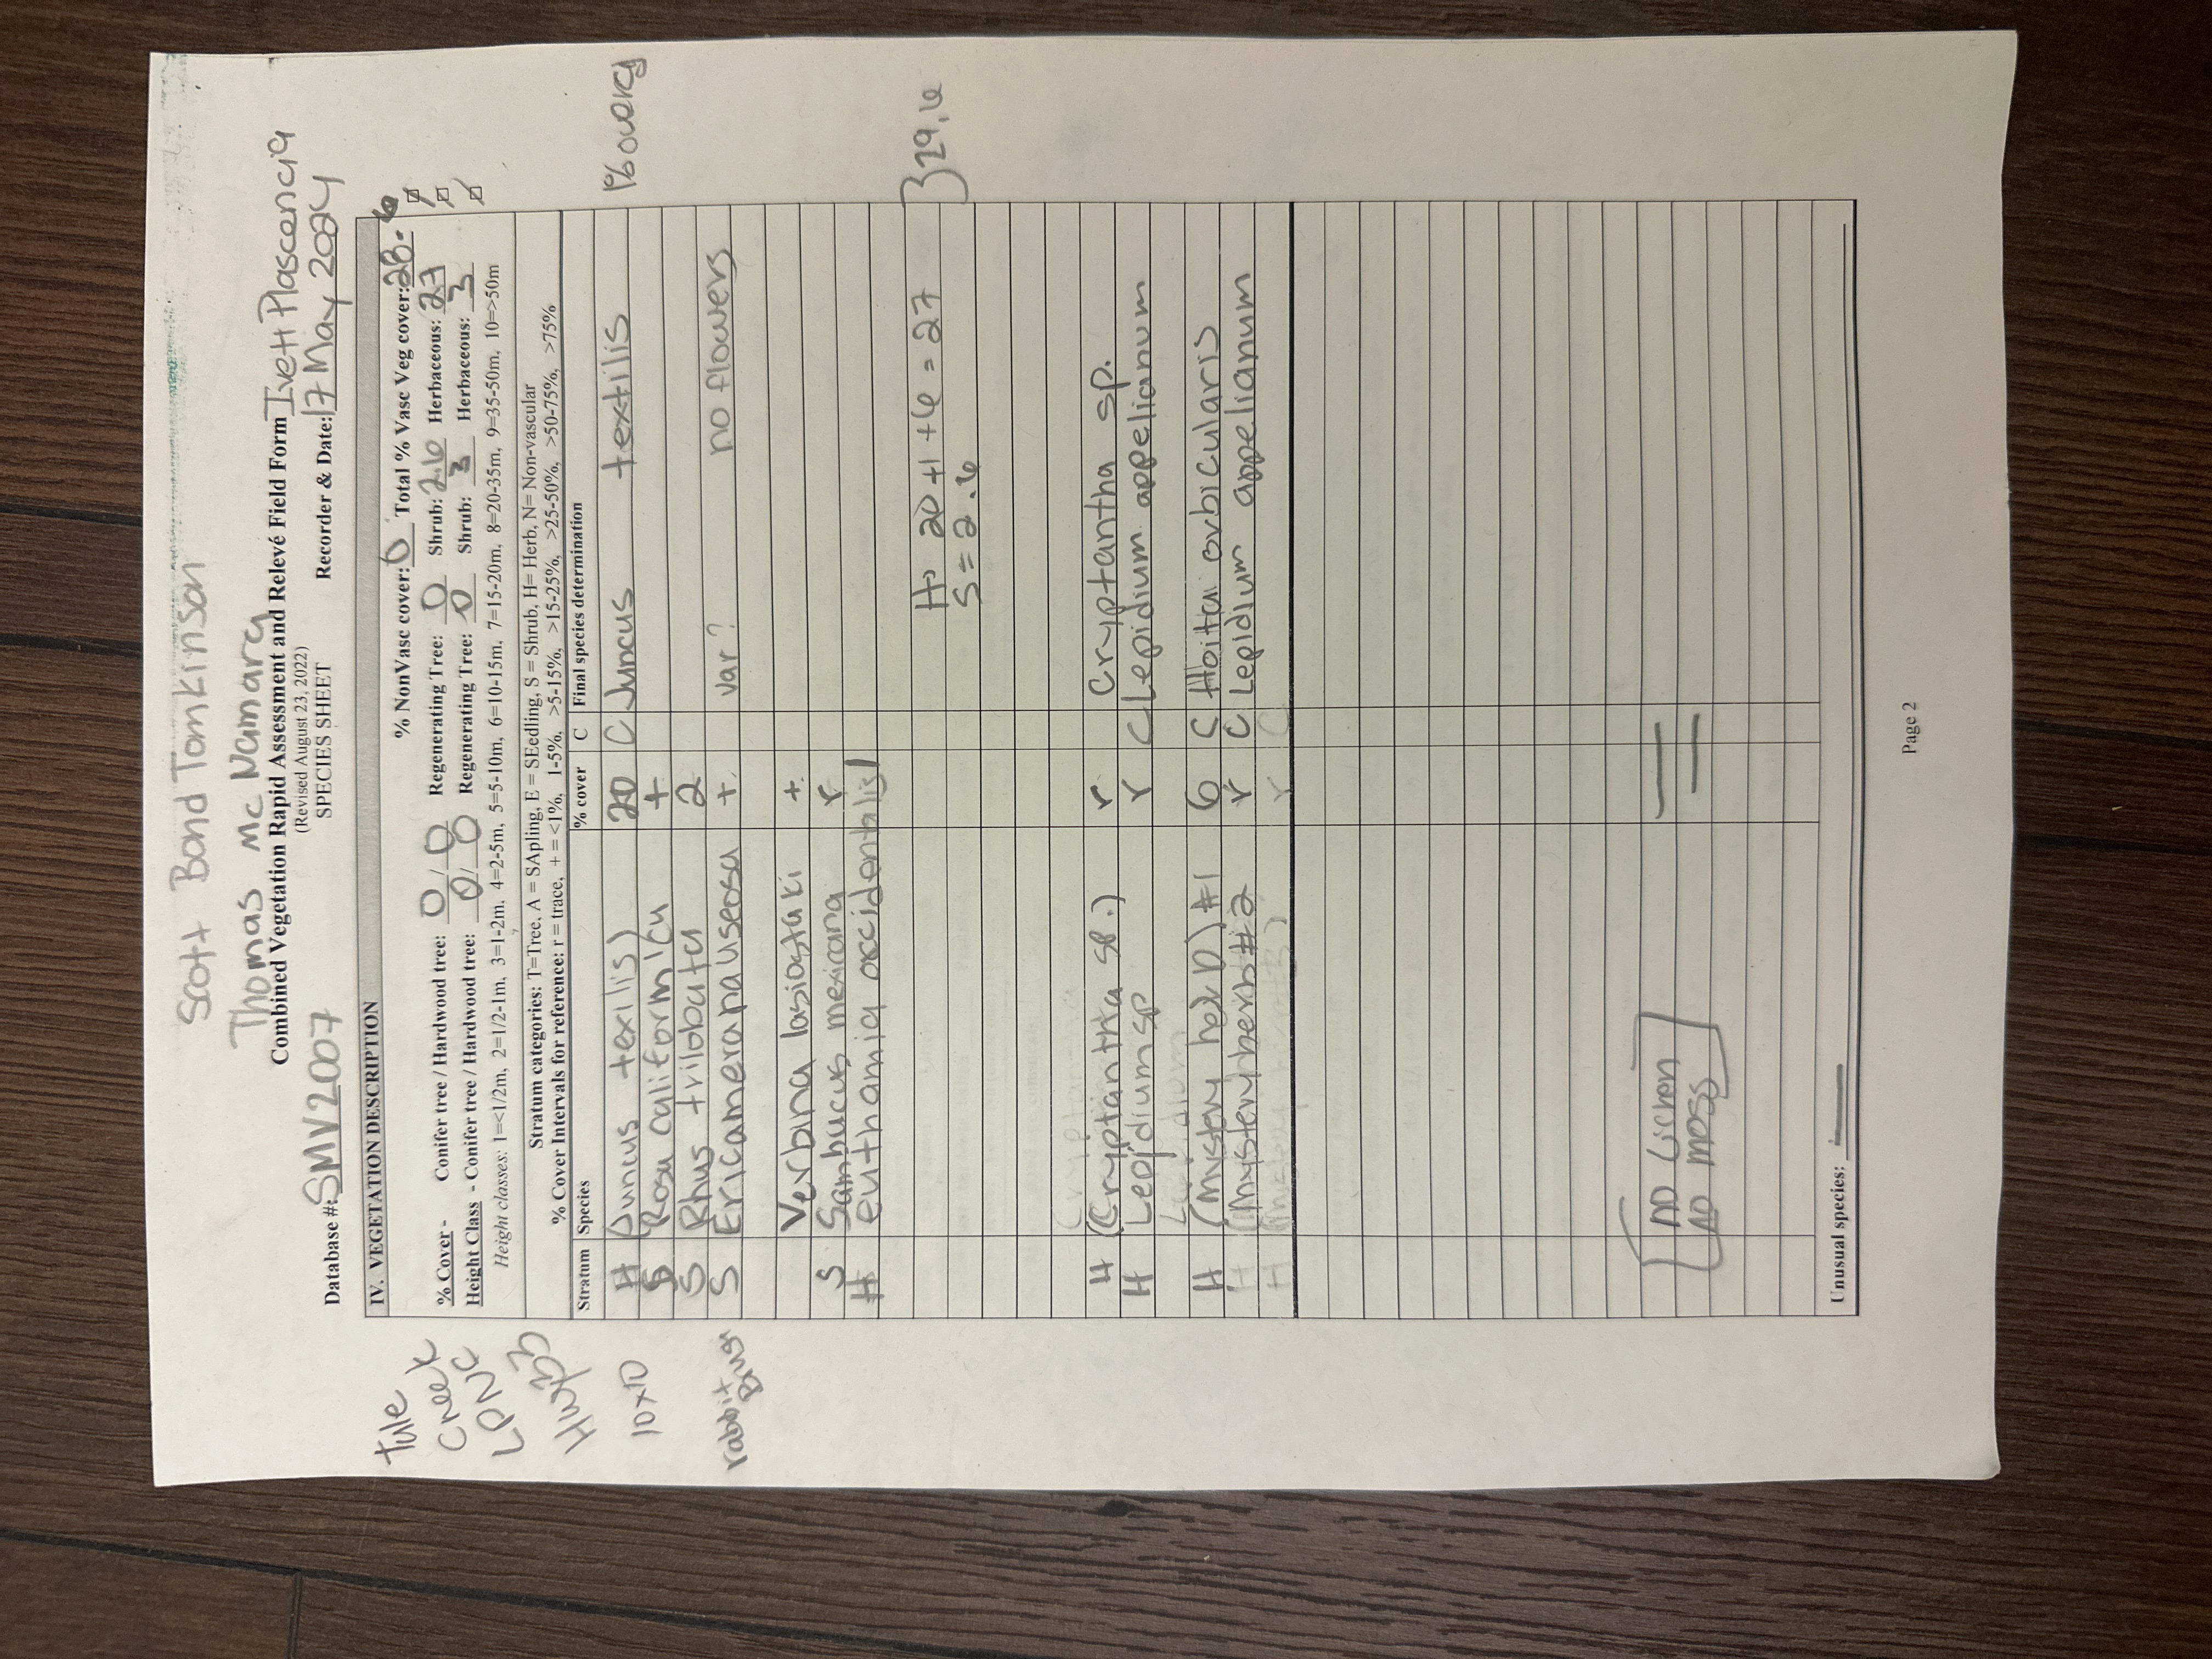 Scott Bond Tomkinson
Thomas McNamara
Combined Vegetation Rapid Assessment and Relevé Field Form Ivett Plascencia
(Revised August 23, 2022)
Database #: SMV2007 SPECIES SHEET Recorder & Date: 17 May 2024
IV. VEGETATION DESCRIPTION
% NonVasc cover: 0 Total % Vasc Veg cover: 28.6
% Cover - Conifer tree / Hardwood tree: 0 / 0 Regenerating Tree: 0 Shrub: 2.6 Herbaceous: 27
Height Class - Conifer tree / Hardwood tree: 0 / 0 Regenerating Tree: 0 Shrub: 3 Herbaceous: 3
Height classes: 1=<1/2m, 2=1/2-1m, 3=1-2m, 4=2-5m, 5=5-10m, 6=10-15m, 7=15-20m, 8=20-35m, 9=35-50m, 10=>50m
Stratum categories: T=Tree, A = SApling, E = SEedling, S = Shrub, H= Herb, N= Non-vascular
% Cover Intervals for reference: r = trace, + = <1%, 1-5%, >5-15%, >15-25%, >25-50%, >50-75%, >75%
Tule
Creek
LPNC
Stratum Species % cover C Final species determination
10x10 H (Juncus texilis) 20 C Juncus textilis
S Rosa californica +
S Rhus trilobata 2
rabbit S Ericamerana useosa + var? no flowers
Verbina lasiostaki +
S Sambucus mexicana r
H euthamia occidentalis 1
H = 20 +1 +6 = 27
S = 2.6
} 29.6
H (Cryptantha sp.) r Cryptantha sp.
H Lepidium sp r C Lepidium appelianum
H (mistery herb) #1 6 C Hoita orbicularis
H (mystery herb #2 r C Lepidium appelianum
no Lichen
no moss
Unusual species:
Page 2